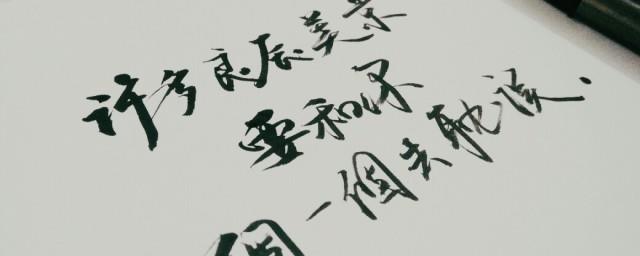 许多良辰美景
要和你
個一個去耽误.